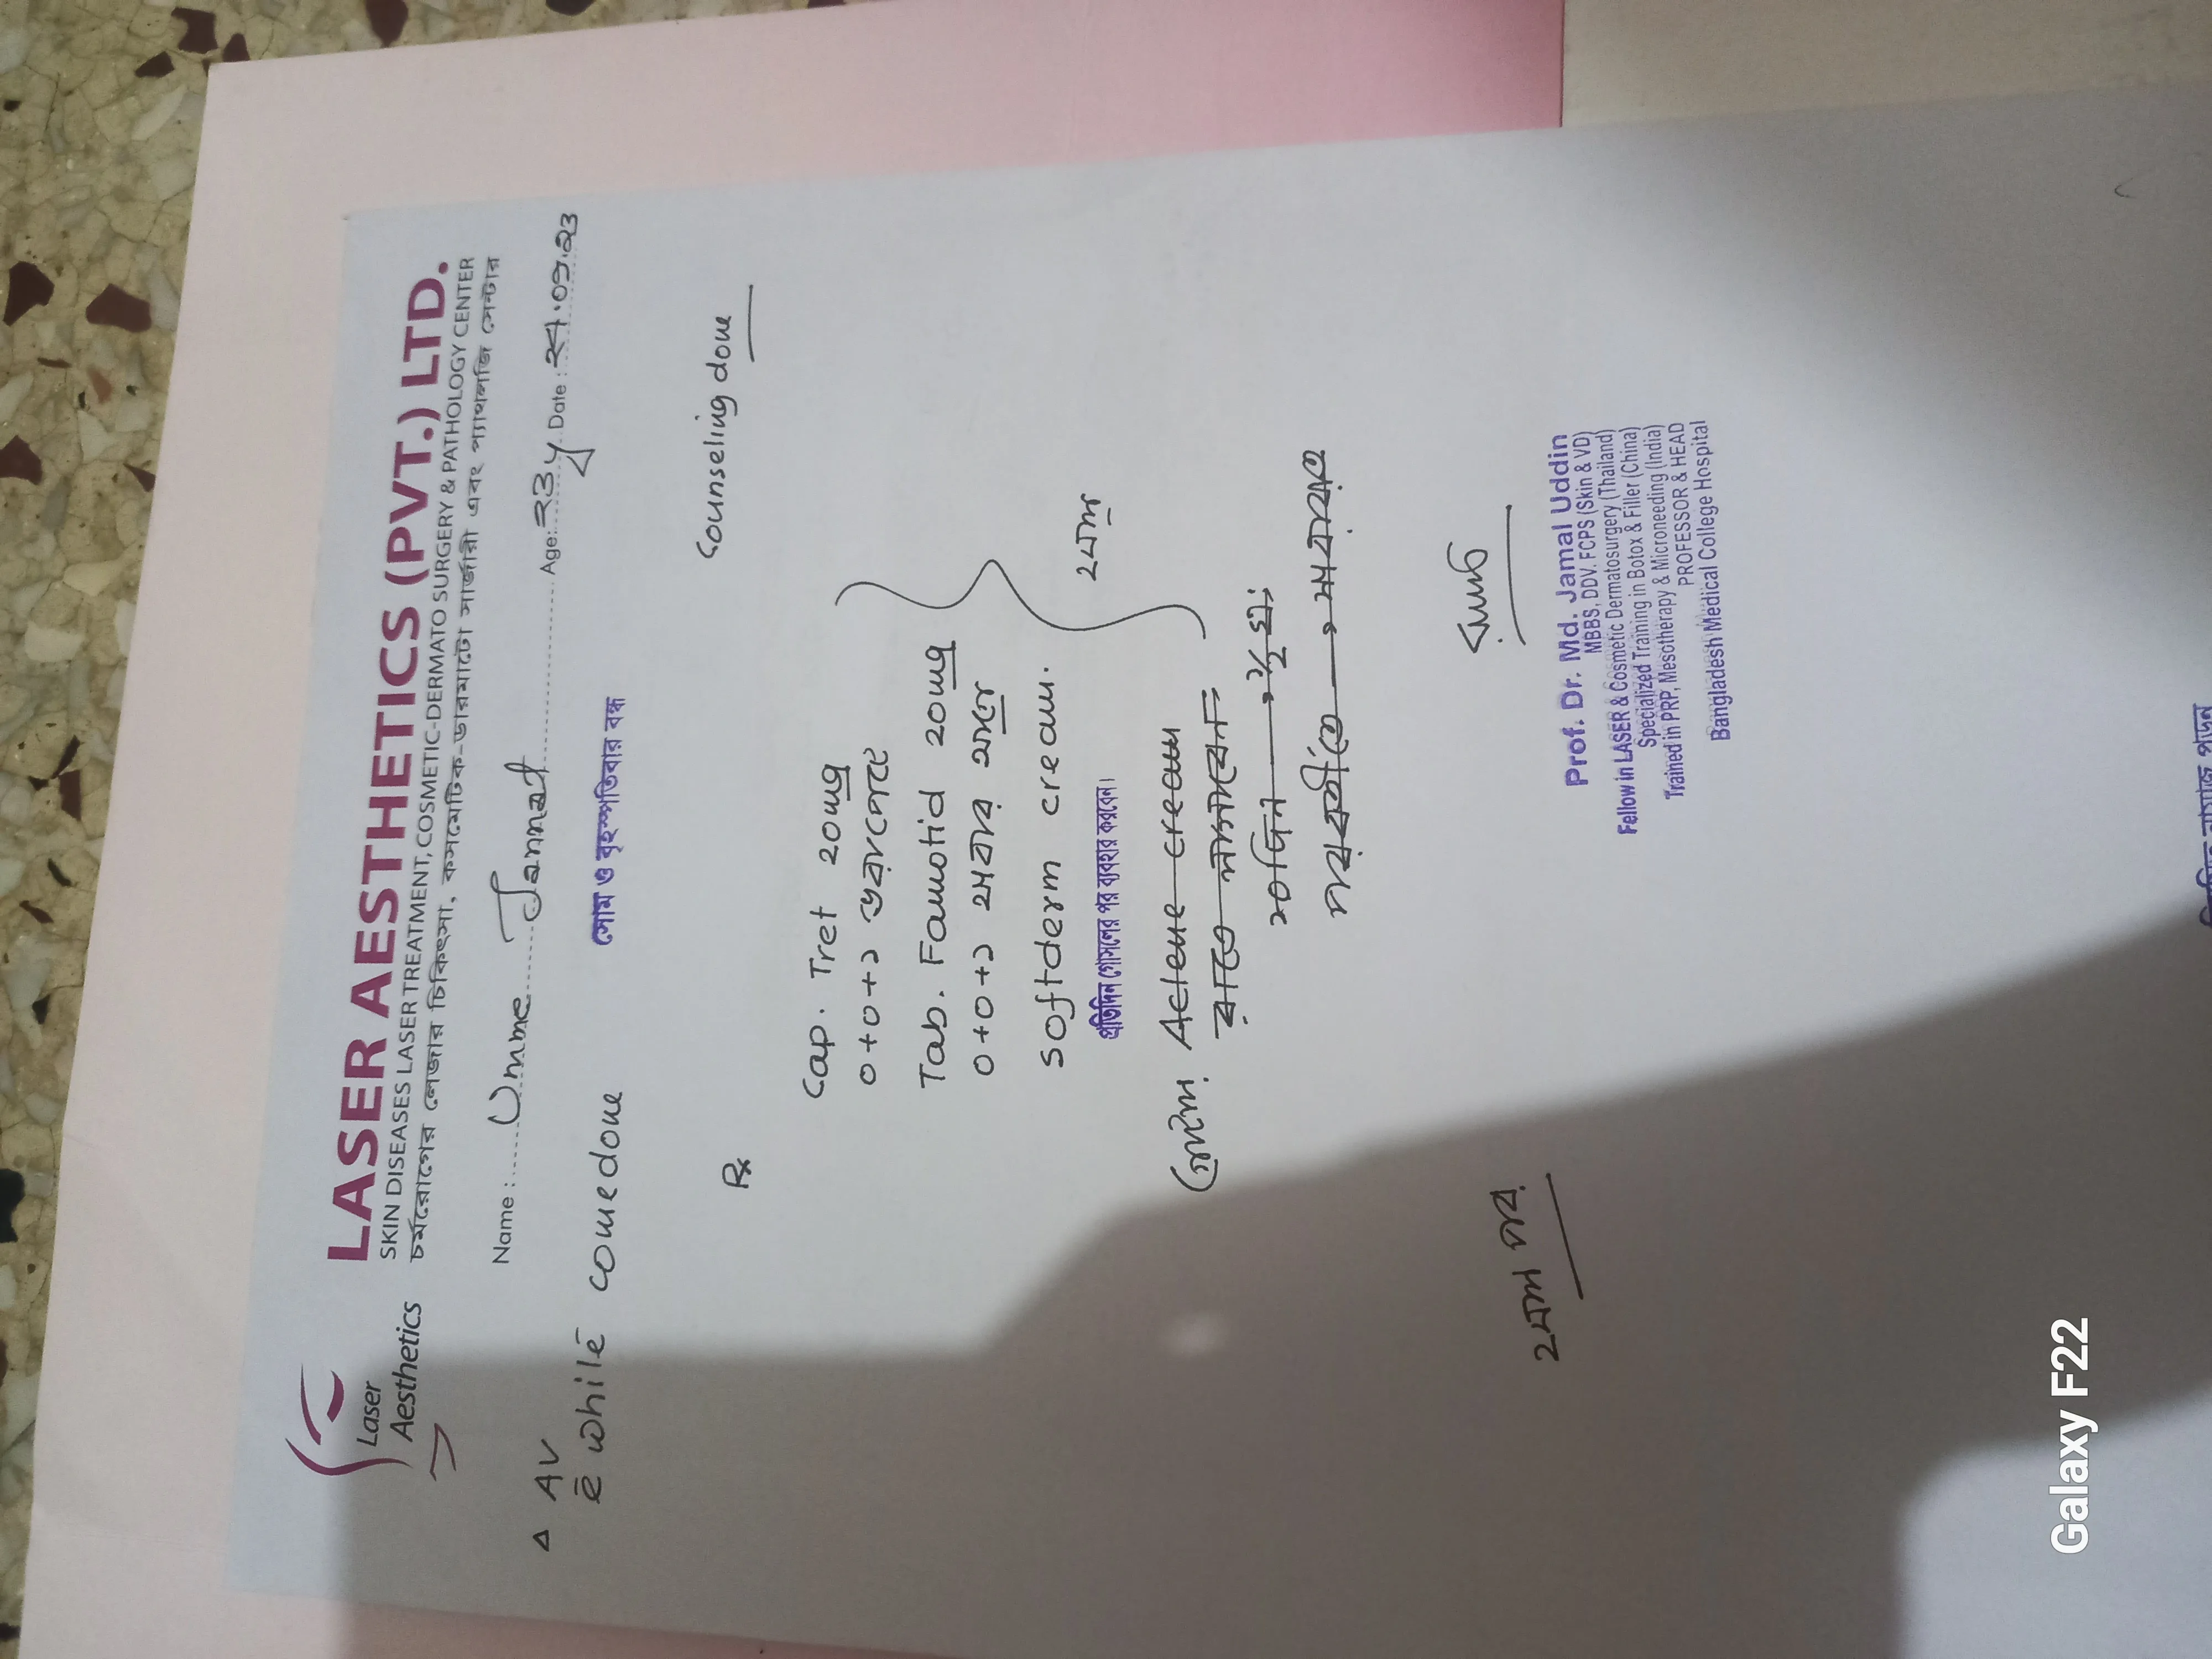 Laser
Aesthetics
LASER AESTHETICS (PVT.) LTD.
SKIN DISEASES LASER TREATMENT, COSMETIC-DERMATO SURGERY & PATHOLOGY CENTER
চর্মরোগের লেজার চিকিৎসা, কসমেটিক-ডারমাটো সার্জারী এবং প্যাথলজি সেন্টার
Name : Umme Jannat Age: ২3y Date : ২৭.০৯.২৩
Δ AV
c̄ while comedone
সোম ও বৃহস্পতিবার বন্ধ
Counseling done
Rx
Cap. Tret 20mg
০+০+১ ভরাপেটে
Tab. Famotid 20mg
০+০+১ খাবার আগে
Softderm cream.
প্রতিদিন গোসলের পর ব্যবহার করবেন।
২মাস
Aclene cream
রাতে লাগাবেন
১০দিন → ১/২ ঘঃ
পরবর্তীতে → সারারাত
২মাস পর
Prof. Dr. Md. Jamal Uddin
MBBS, DDV, FCPS (Skin & VD)
Fellow in LASER & Cosmetic Dermatosurgery (Thailand)
Specialized Training in Botox & Filler (China)
Trained in PRP, Mesotherapy & Microneeding (India)
PROFESSOR & HEAD
Bangladesh Medical College Hospital
Galaxy F22